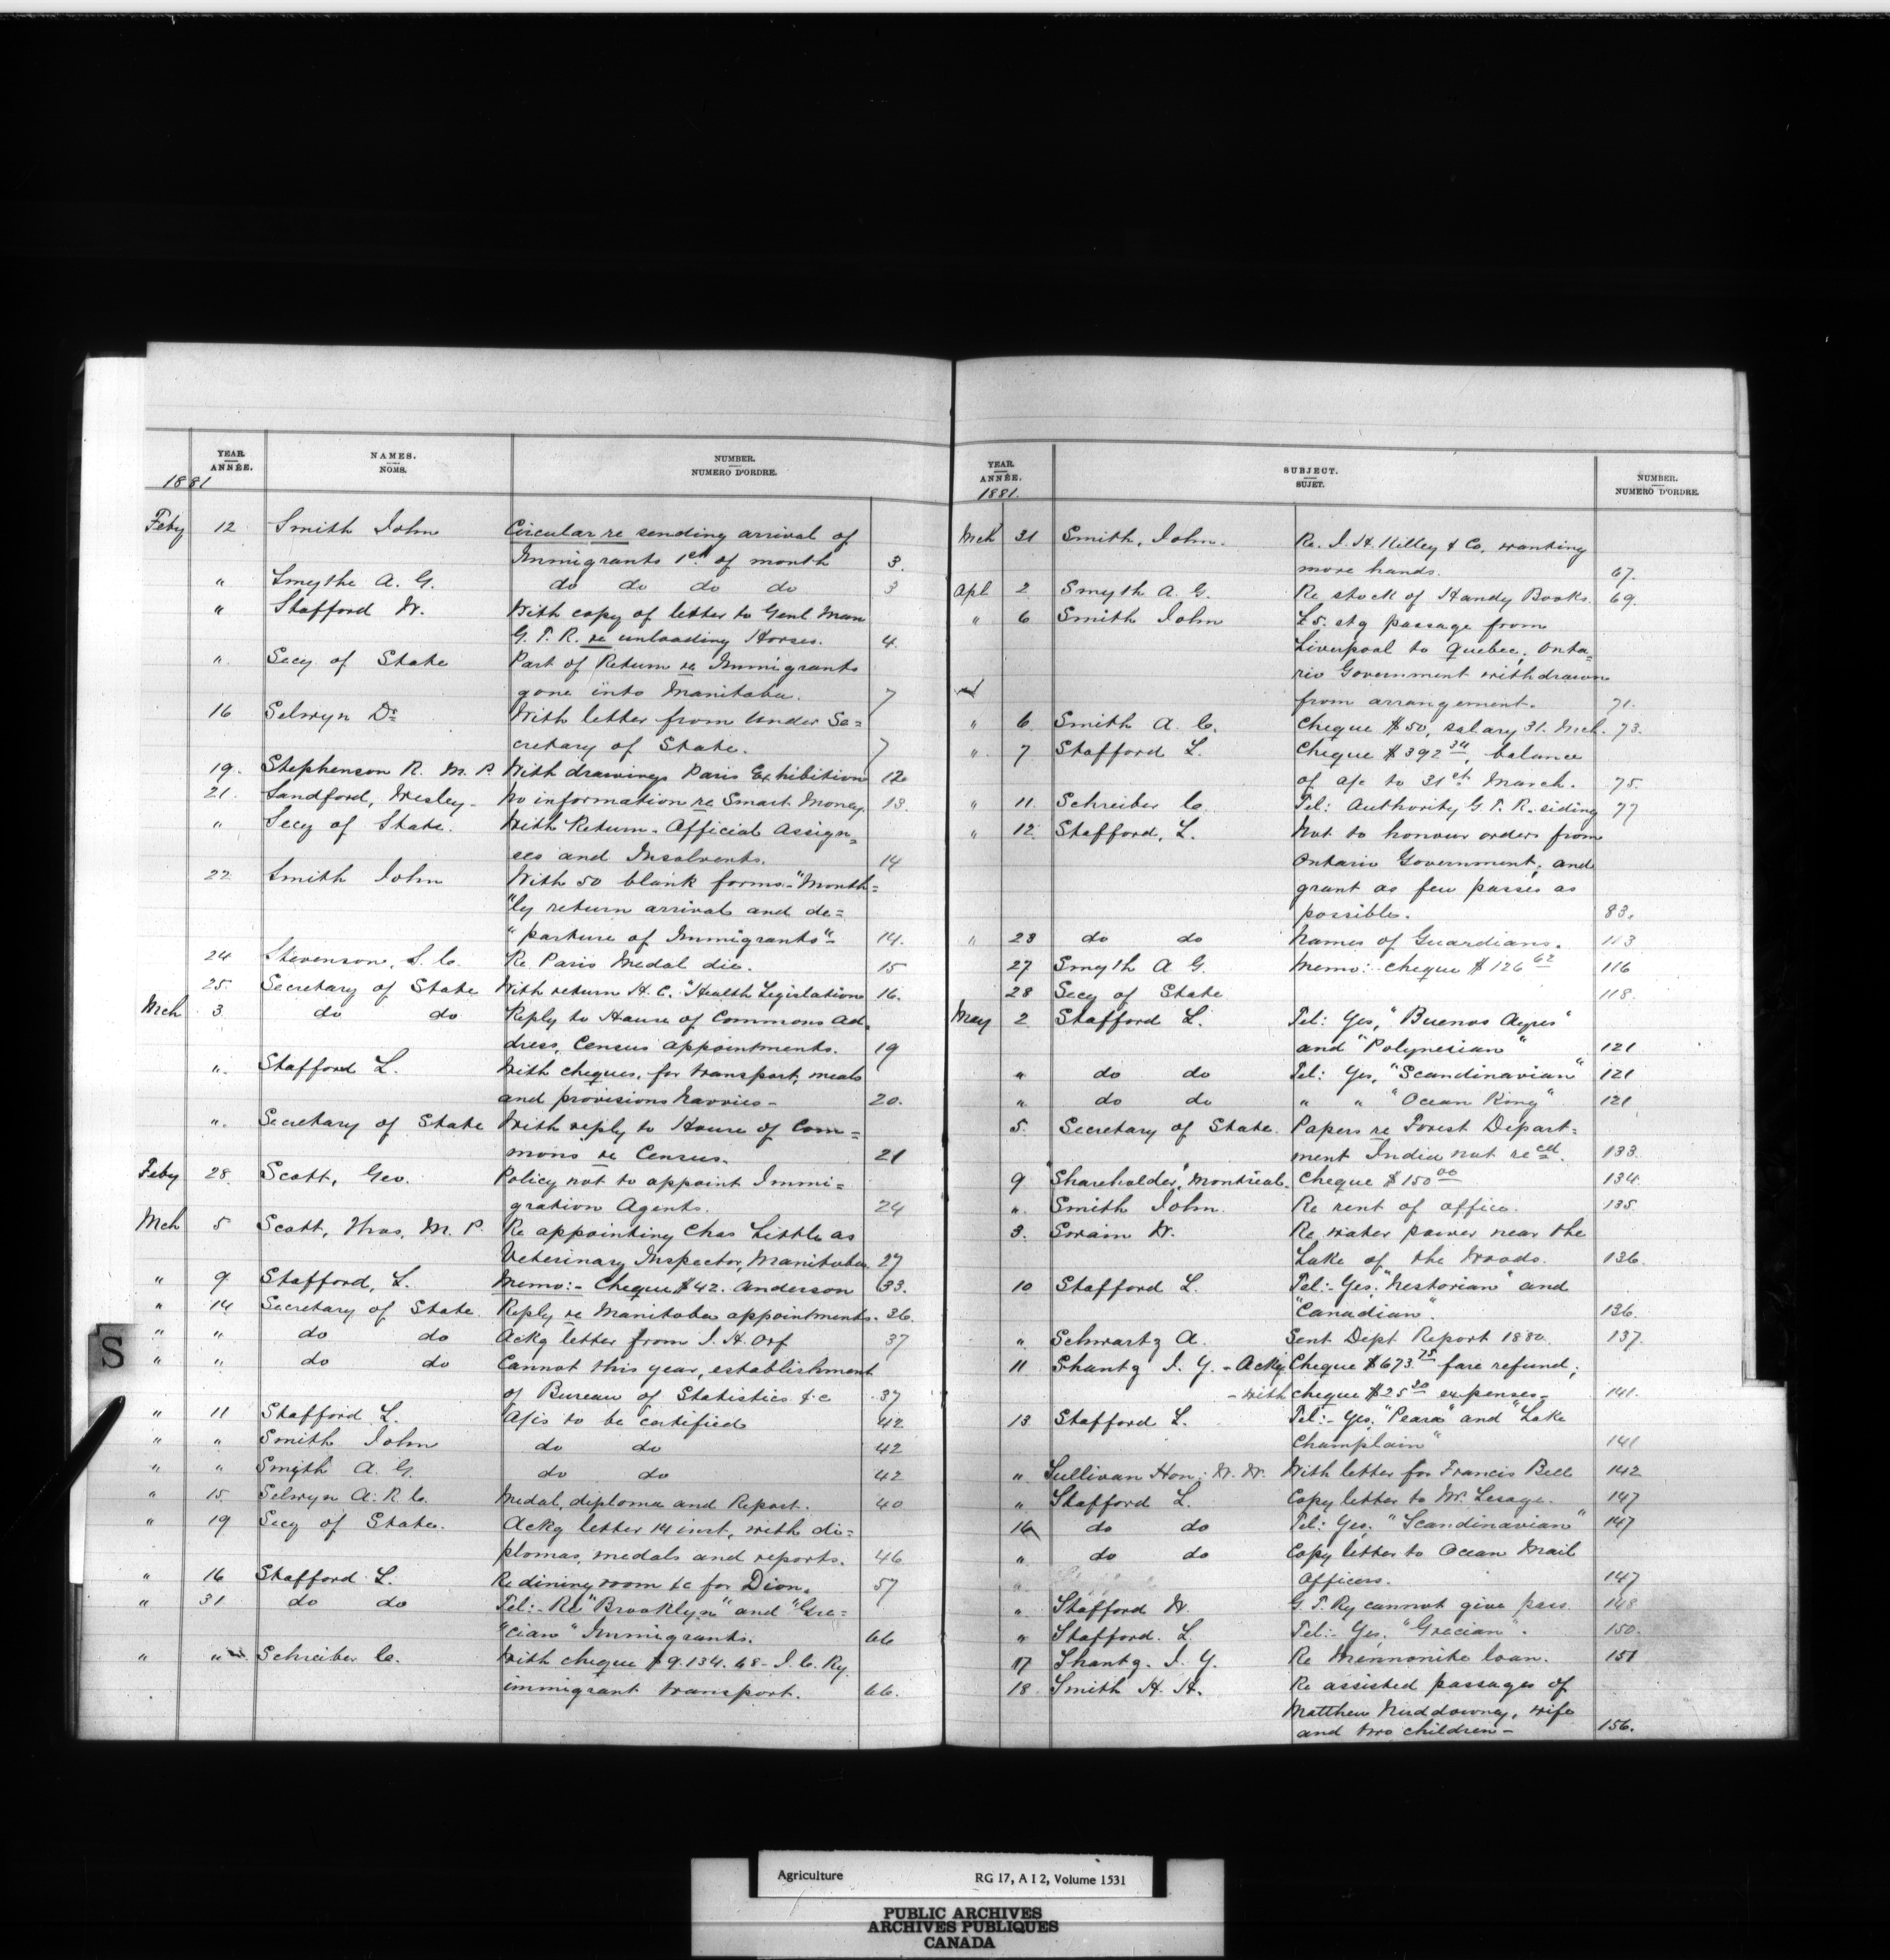 YEAR. NAMES. NUMBER.
ANNÉE. NOMS. NUMERO D'ORDRE.
1881
Feby 12 Smith John Circular re sending arrival of
Immigrants 1st of month 3.
" Smythe A. G. do do do do 3
" Stafford W. With copy of letter to Genl Man
G. T. R. re unloading Horses. 4.
" Secy of State Part of Return re Immigrants
gone into Manitoba. 7
16 Selwyn Dr With letter from Under Se=
cretary of State. 7
19. Stephenson R. M. P. With drawings Paris Exhibition 12
21. Sandford, Wesley - No information re Smart Money. 13.
" Secy of State. With Return - Official Assign=
ees and Insolvents. 14
22 Smith John With 50 blank forms - "Month=
"ly return arrival and de=
" parture of Immigrants" - 14.
24 Stevenson, S. C. Re Paris Medal die. 15
25. Secretary of State With return H. C. "Health Legislation 16.
Mch 3 do do Reply to House of Commons Ad=
dress, Census appointments. 19
" Stafford L. With cheques, for transport, meals
and provisions Navvies - 20.
" Secretary of State With reply to House of Com=
mons re Census. 21
Feby 28. Scott, Geo. Policy not to appoint Immi=
gration Agents. 24
Mch 5 Scott, Thos, M. P. Re appointing Chas Little as
Veterinary Inspector, Manitoba. 27
" 9 Stafford, L. Memo:- Cheque $42. Anderson 33.
" 14 Secretary of State. Reply re Manitoba appointments. 36.
" " do do Ackg letter from J. H. Orf 37
" " do do Cannot this year, establishment
of Bureau of Statistics &c 37
" 11 Stafford L. A/cs to be certified 42
" " Smith John do do 42
" " Smyth A. G. do do 42
" 15. Selwyn A. R. C. Medal, diploma and Report. 40
" 19 Secy of State. Ackg letter 14 inst, with di=
plomas, medals and reports. 46
" 16 Stafford L. Re dining room &c for Dion. 57
" 31 do do Tel:- Re "Brooklyn" and "Gre=
"cian" Immigrants. 66
" " Schreiber C. With cheque $9.134.68 - I. C. Ry.
immigrant transport. 66.
S
YEAR. SUBJECT. NUMBER.
ANNÉE. SUJET. NUMERO D'ORDRE.
1881.
Mch 31 Smith, John. Re. J. H. Killey & Co, wanting
more hands. 67.
Apl 2 Smyth A. G. Re stock of Handy Books. 69.
" 6 Smith John £5. stg passage from
Liverpool to Quebec; Onta=
rio Government withdrawn
from arrangement. 71.
" 6 Smith A. C. Cheque $50, salary 31. Mch. 73.
" 7 Stafford L. Cheque $392 34, balance
of a/c to 31st March. 75.
" 11. Schreiber C. Tel: Authority G. T. R. siding 77
" 12. Stafford, L. Not to honour orders from
Ontario Government; and
grant as few passes as
possible. 83.
" 23 do do Names of Guardians. 113
27 Smyth A G. Memo: - cheque $126 62 116
28 Secy of State 118.
May 2 Stafford L. Tel: Yes, "Buenos Ayres"
and "Polynesian" 121
" do do Tel: Yes, "Scandinavian" 121
" do do " " "Ocean King" 121
5. Secretary of State. Papers re Forest Depart=
ment India not recd. 133.
9 "Shareholder", Montreal. Cheque $150 00 134.
" Smith John. Re rent of office. 135.
3. Swain W. Re water power near the
Lake of the Woods. 136.
10 Stafford L. Tel:- Yes. "Nestorian" and
"Canadian". 136.
" Schwartz A. Sent Dept Report 1880. 137.
11 Shantz J. Y. - Ackg. Cheque $673.75 fare refund;
- with cheque $25 20 expenses - 141.
13 Stafford L. Tel:- Yes. "Peara" and "Lake
Champlain" 141
" Sullivan Hon: W. W. With letter for Francis Bell 142
" Stafford L. Copy letter to Mr. Lesage. 147
16 do do Tel: Yes. "Scandinavian" 147
" do do Copy letter to Ocean Mail
" Officers. 147
" Stafford W. G. T. Ry cannot give pass. 148
" Stafford. L. Tel:- Yes. "Grecian". 150.
17 Shantz. J. Y. Re Mennonite loan. 151
18 Smith H. H. Re assisted passages of
Matthew wife
and two children - 156.
Agriculture RG 17, A I 2, Volume 1531
PUBLIC ARCHIVES
ARCHIVES PUBLIQUES
CANADA